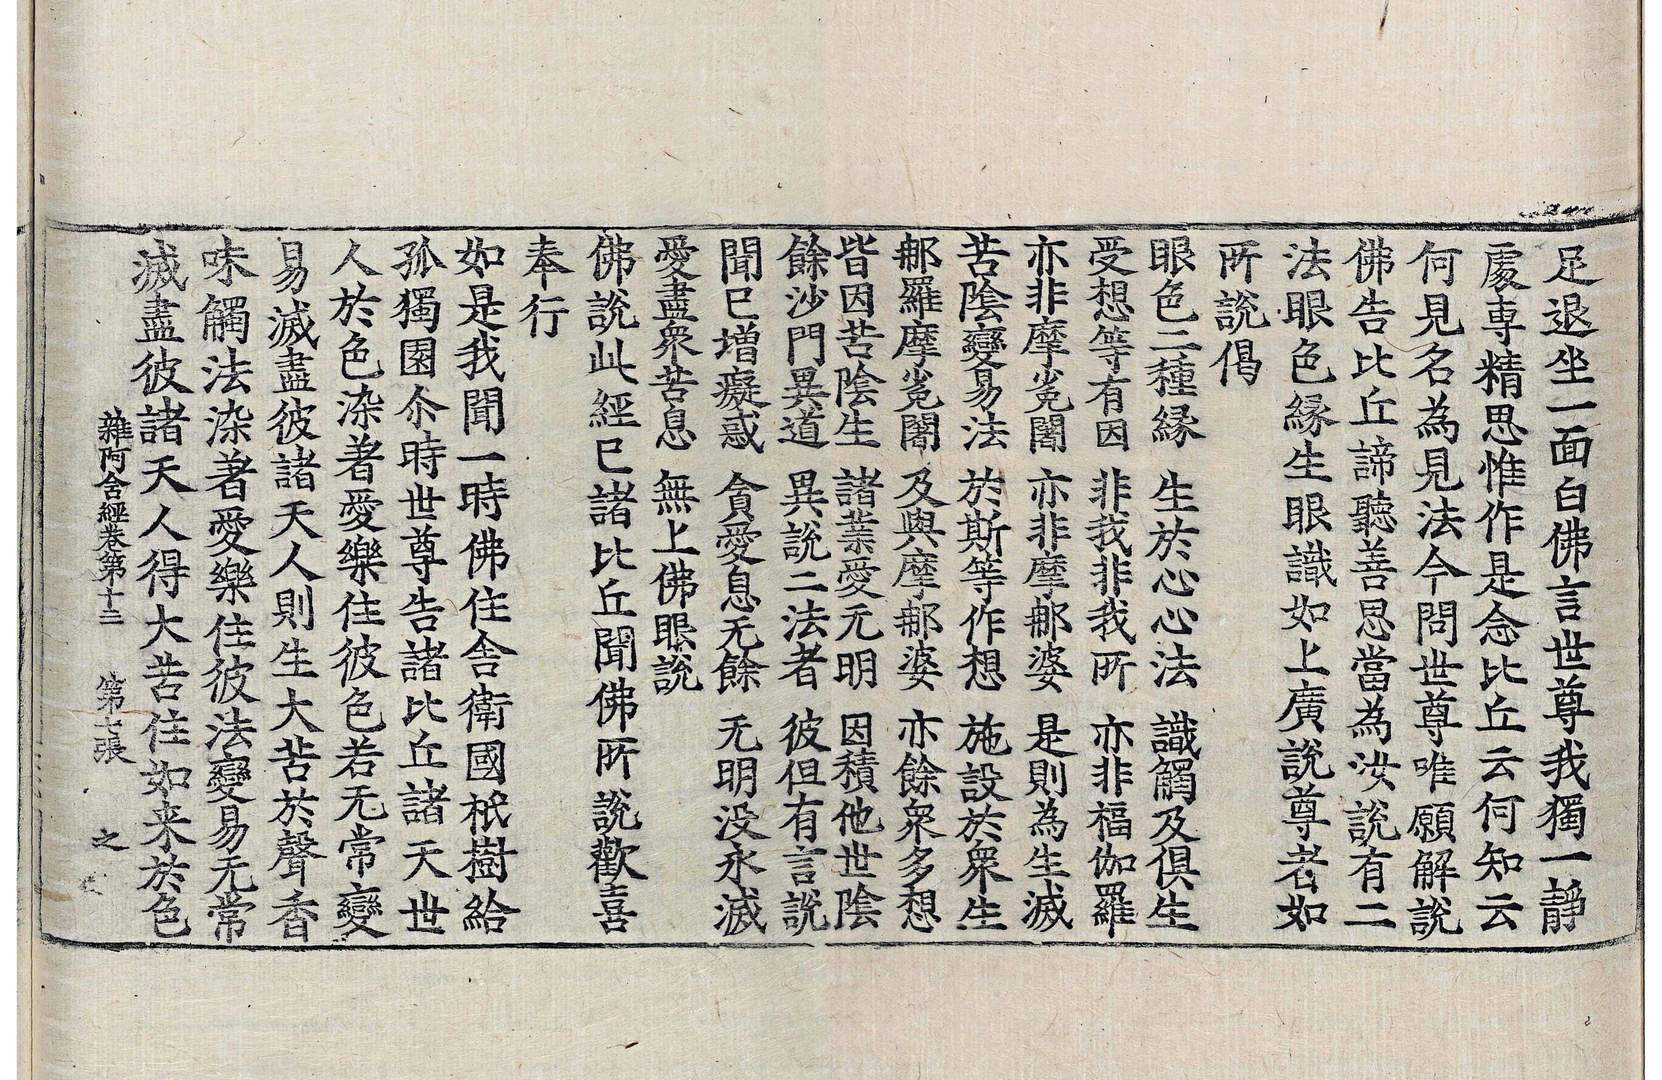 足退坐一面白佛言世尊我獨一靜
處專精思惟作是念比丘云何知云
何見名為見法今問世尊唯願解說
佛告比丘諦聽善思當為汝說有二
法眼色緣生眼識如上廣說尊者如
所說偈
眼色二種緣 生於心心法 識觸及俱生
受想等有因 非我非我所 亦非福伽羅
亦非摩㝹闍 亦非摩䣕婆 是則為生滅
苦陰變易法 於斯等作想 施設於衆生
䣕羅摩㝹闍 及與摩䣕婆 亦餘衆多想
皆因苦陰生 諸業愛无明 因積他世陰
餘沙門異道 異說二法者 彼但有言說
聞已增癡惑 貪愛息无餘 无明没永滅
愛盡衆苦息 無上佛眼說
佛說此經已諸比丘聞佛所說歡喜
奉行
如是我聞一時佛住舍衛國祇樹給
孤獨園尒時世尊告諸比丘諸天世
人於色染著愛樂住彼色若无常變
易滅盡彼諸天人則生大苦於聲香
味觸法染著愛樂住彼法變易无常
滅盡彼諸天人得大苦住如来於色
雜阿含經卷第十三 第七張 之